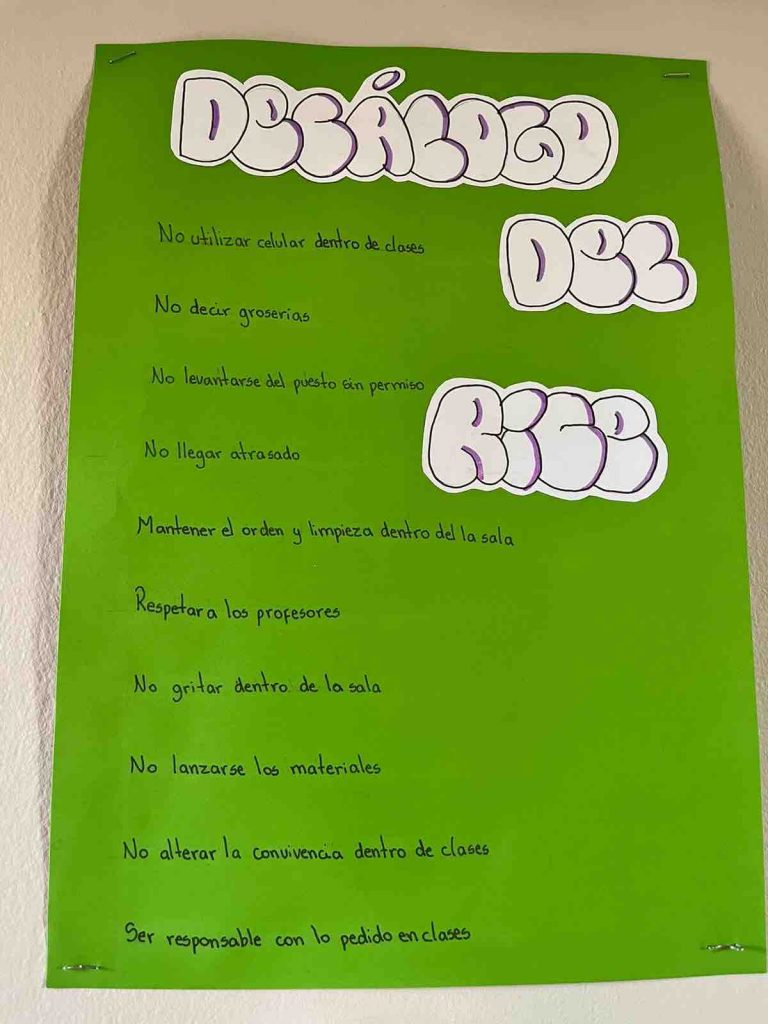 DeCÁLOGO
DeL
RiCe
No utilizar celular dentro de clases
No decir groserias
No levantarse del puesto sin permiso
No llegar atrasado
Mantener el orden y limpieza dentro del la sala
Respetar a los profesores
No gritar dentro de la sala
No lanzarse los materiales
No alterar la convivencia dentro de clases
Ser responsable con lo pedido en clases